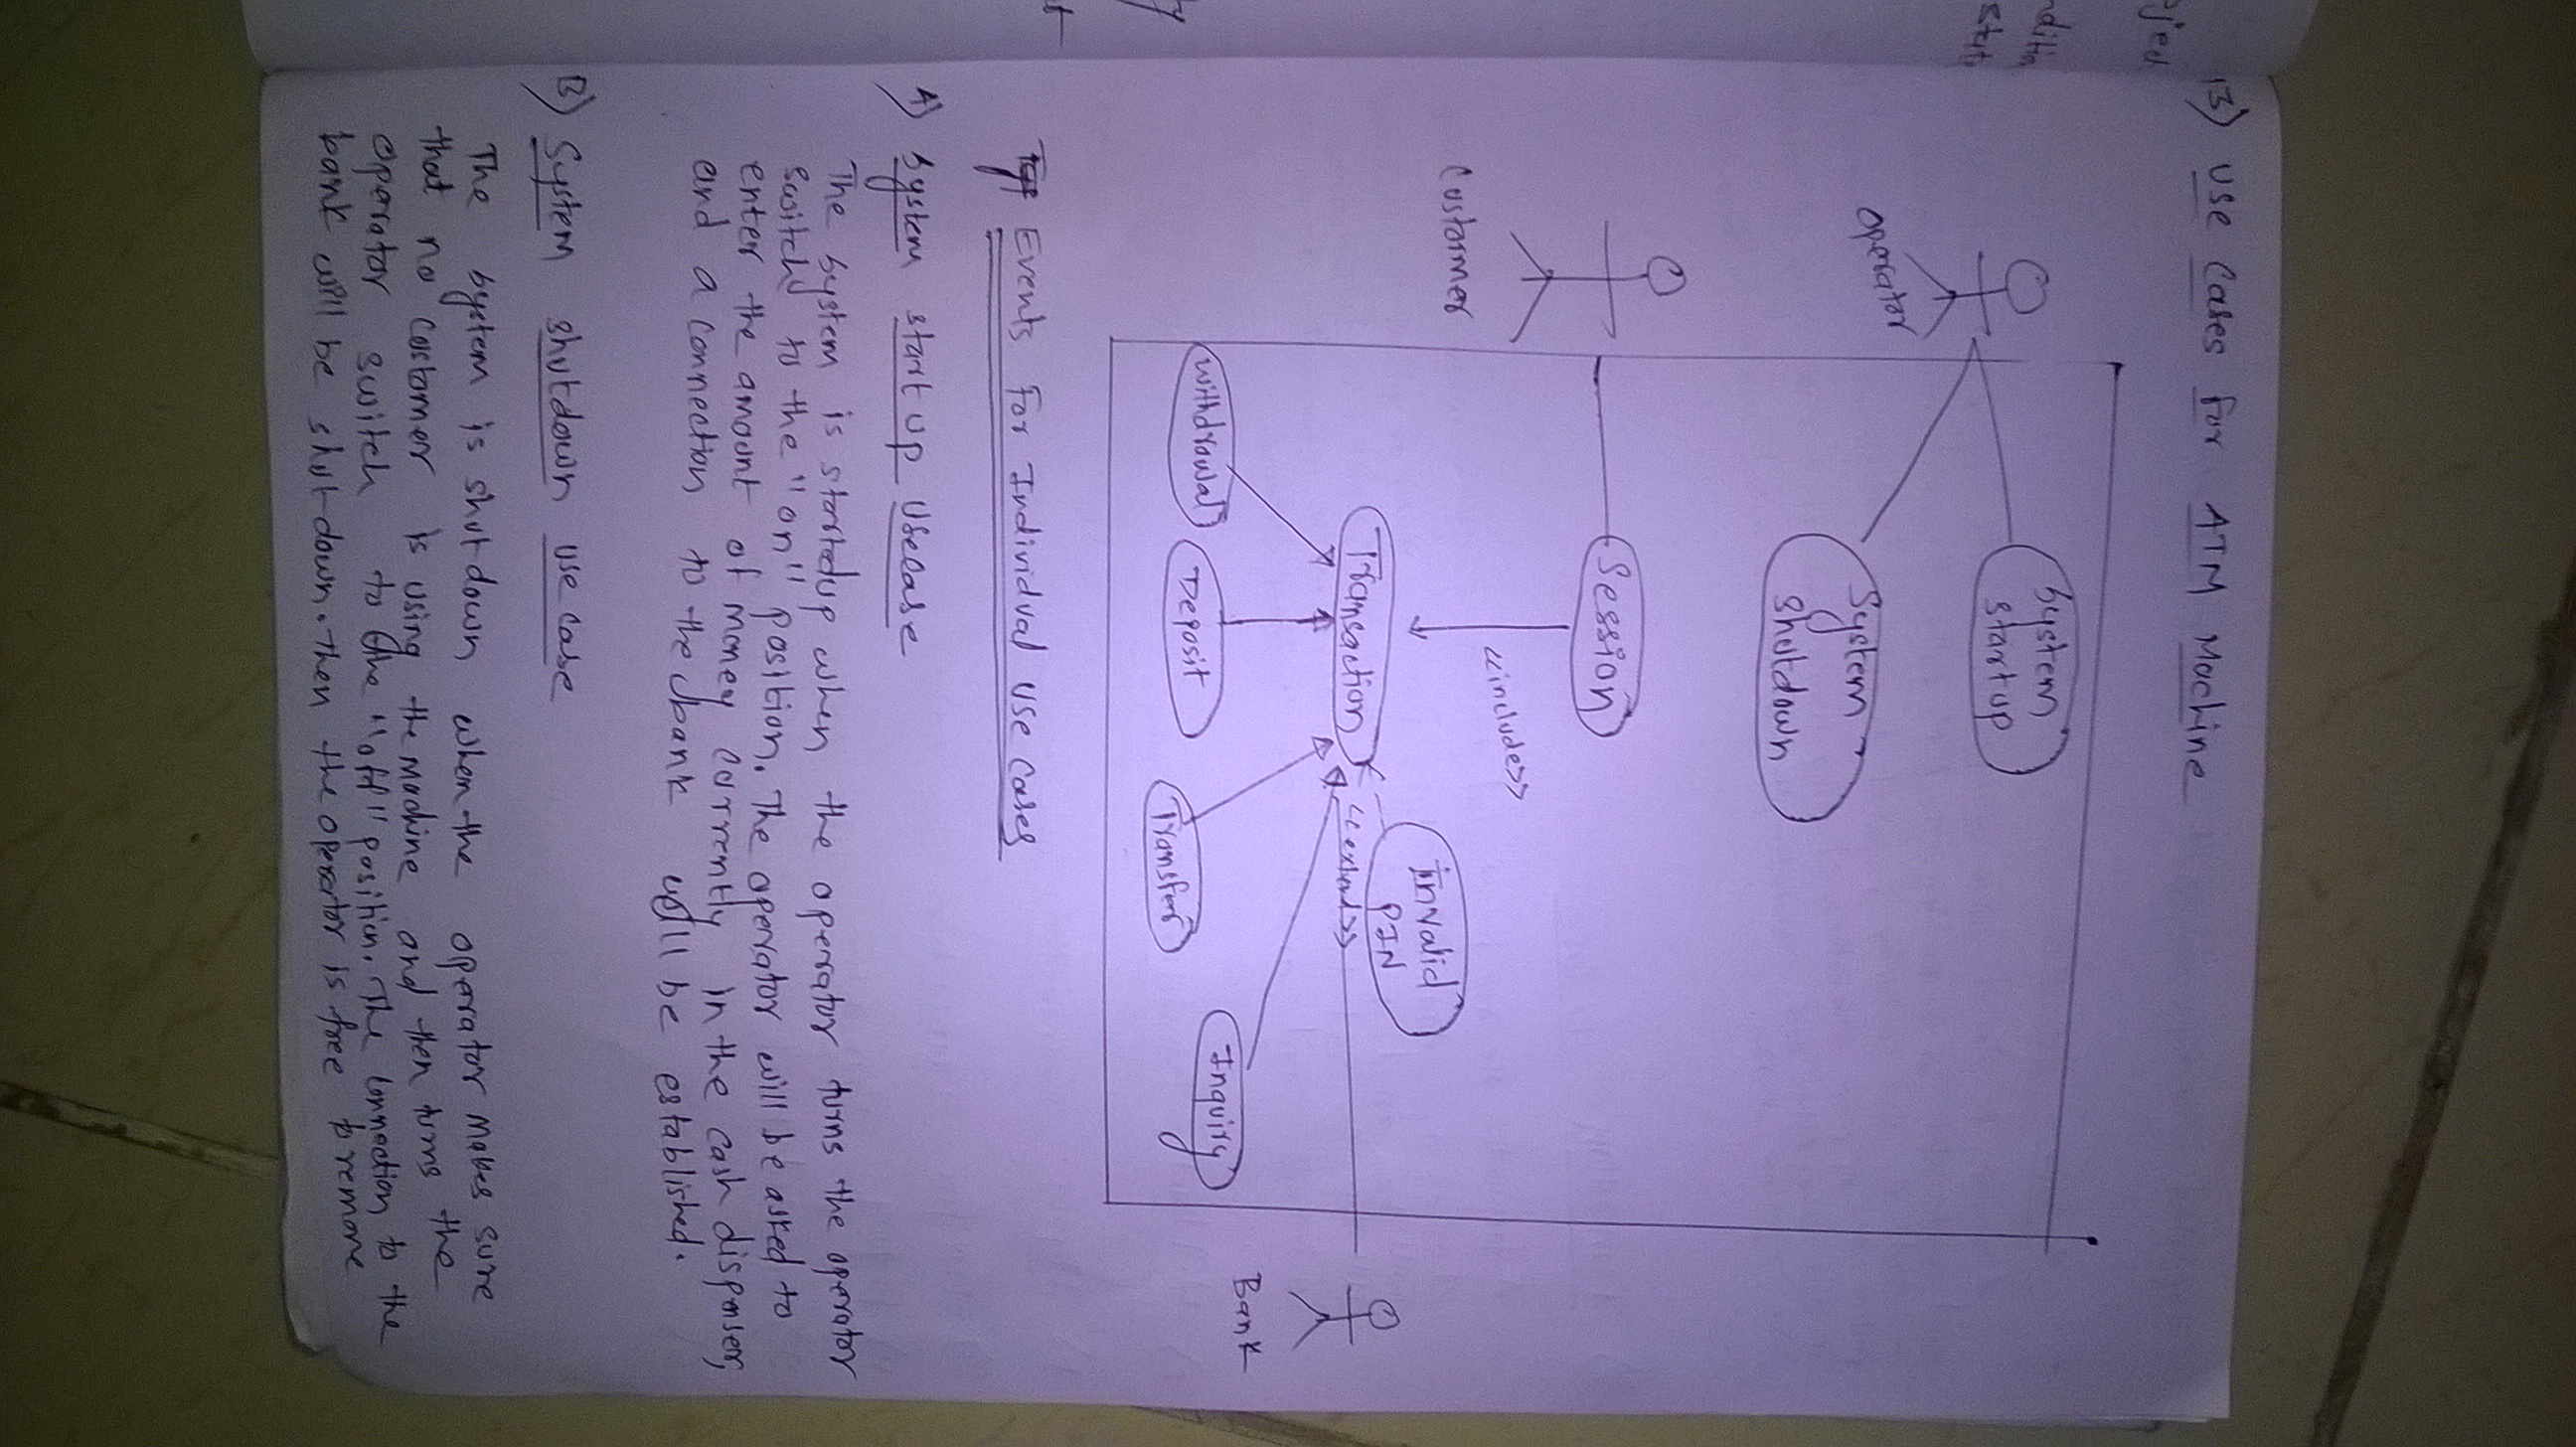 13) Use Cases for ATM Machine
System
startup
System
shutdown
operator
Session
<<include>>
Custormer
Invalid
PIN
Transaction
<<extend>>
Withdrawal
Deposit
Transfer
Inquiry
Bank
Events for Individual Use Cases
A) System start up Usecase
The System is startedup when the operator turns the operator
switch to the "on" position. The operator will be asked to
enter the amount of money currently in the cash dispenser,
and a connection to the bank will be established.
B) System shutdown use case
The System is shutdown when the operator makes sure
that no costomer is using the machine and then turns the
operator switch to the "off" position. The connection to the
bank will be shutdown. then the operator is free to remove